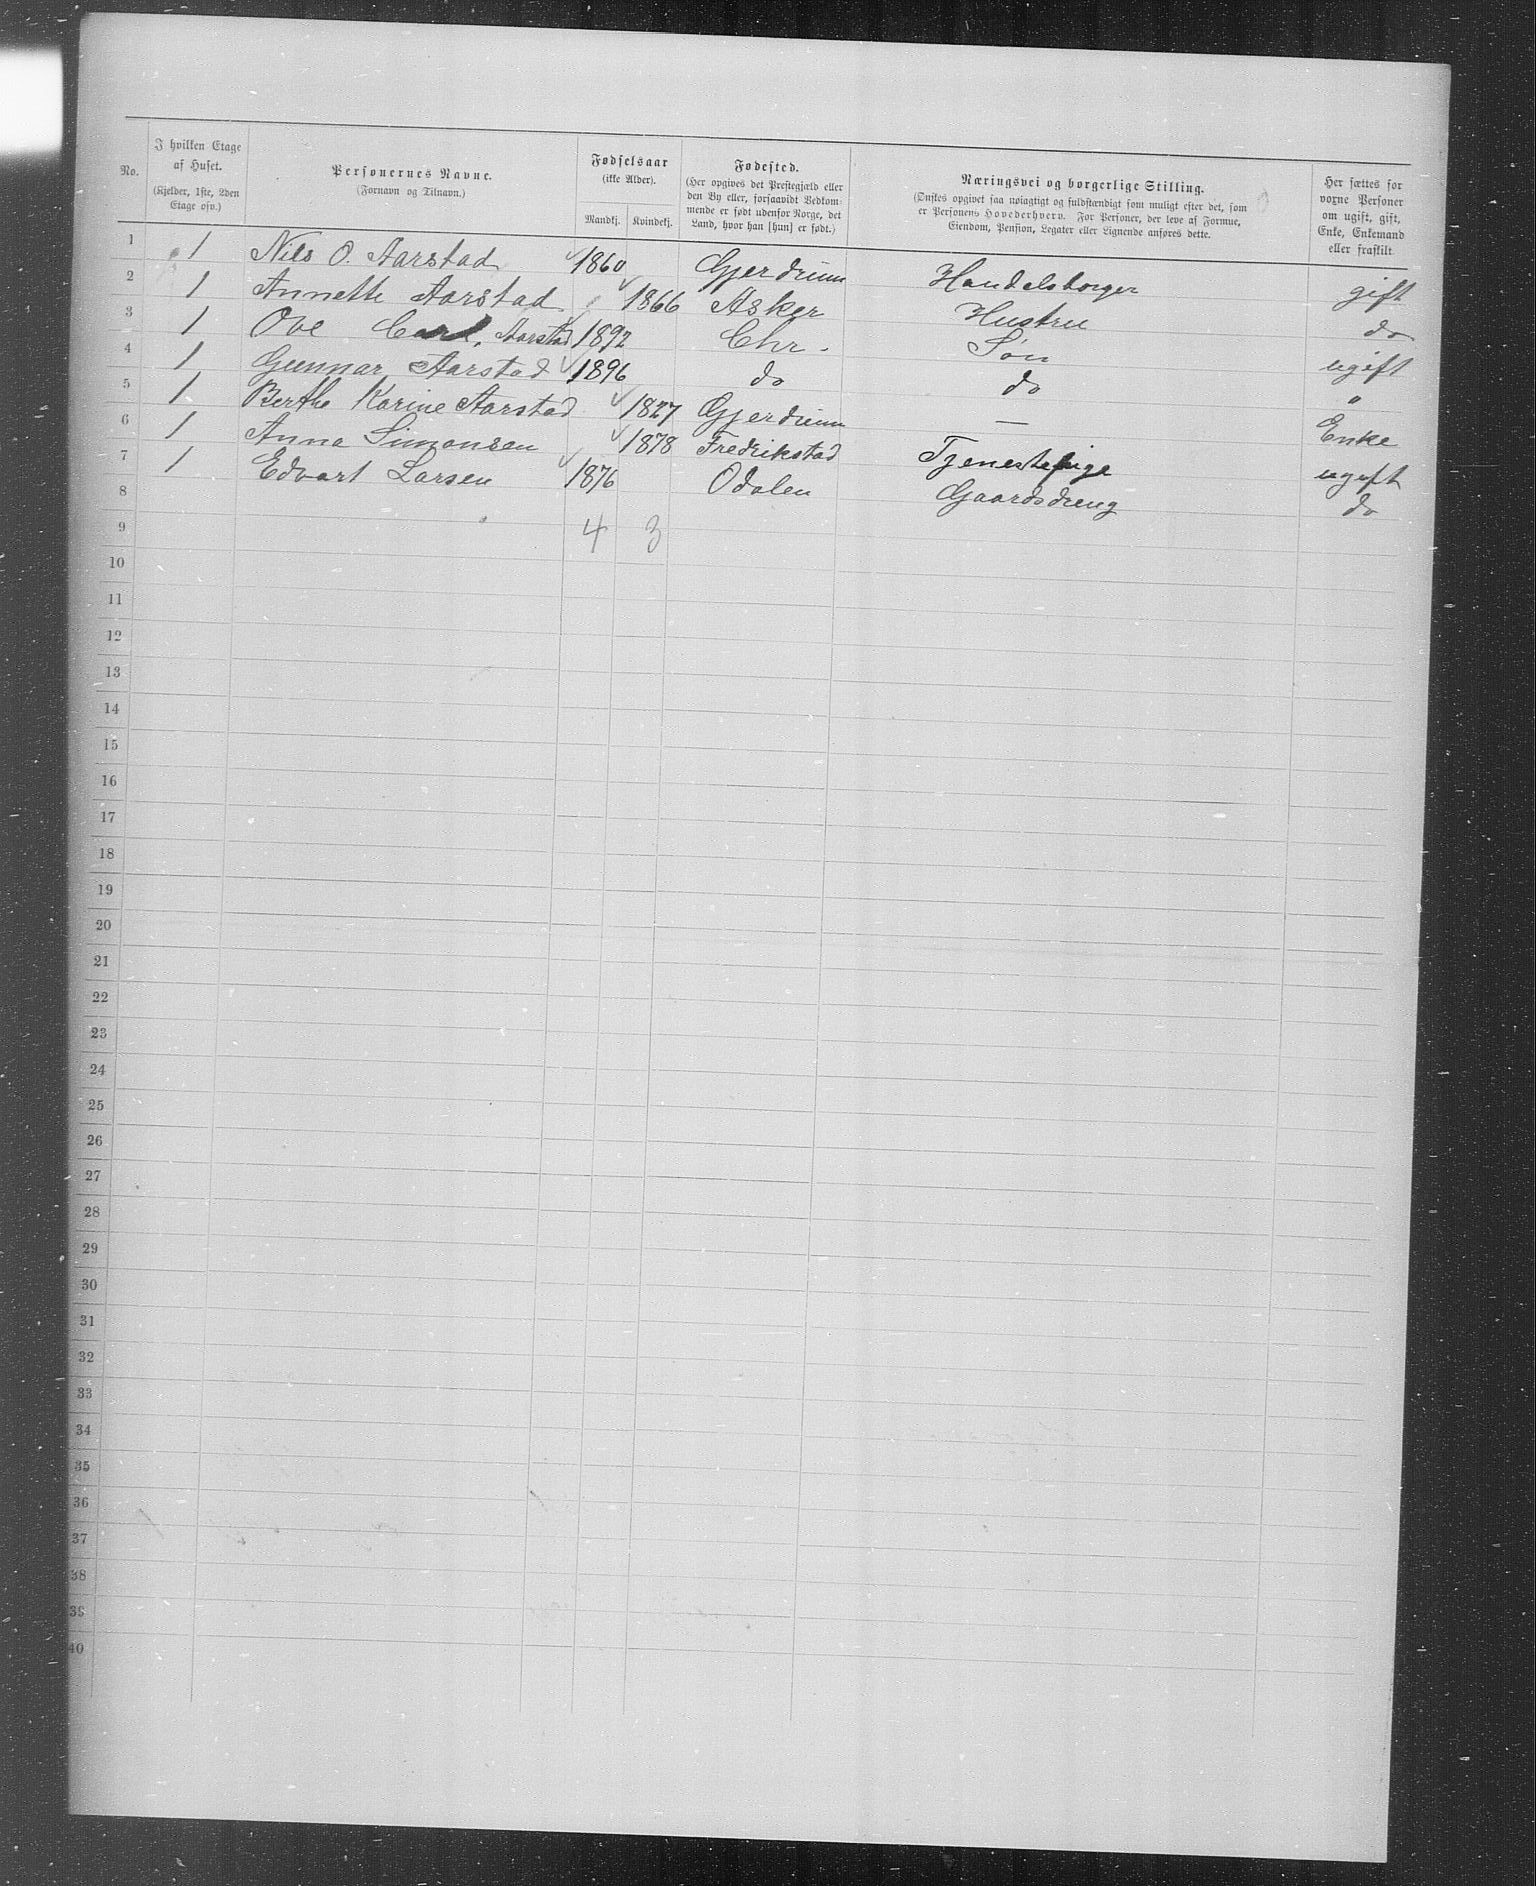 No. | I hvilken Etage af Huset. (Kjelder, 1ste, 2den Etage osv.) | Personernes Navne. (Fornavn og Tilnavn.) | Fødselsaar (ikke Alder). Mandkj. | Kvindekj. | Fødested. (Her opgives det Prestegjæld eller den By eller, forsaavidt Vedkommende er født udenfor Norge, det Land, hvor han [hun] er født.) | Næringsvei og borgerlige Stilling. (Ønskes opgivet saa nøiagtigt og fuldstændigt som muligt efter det, som er Personens Hovederhverv. For Personer, der leve af Formue, Eiendom, Pension, Legater eller Lignende anføres dette. | Her sættes for voxne Personer om ugift, gift, Enke, Enkemand eller fraskilt.
1 | 1 | Nils O. Aarstad | 1860 | | Gjerdrum | Handelsborger | gift
2 | 1 | Annette Aarstad | | 1866 | Asker | Hustru | do
3 | 1 | Ove Carl. Aarstad | 1892 | | Chr. | Søn | ugift
4 | 1 | Gunnar Aarstad | 1896 | | do | do | "
5 | 1 | Berthe Karine Aarstad | | 1827 | Gjerdrum | — | Enke
6 | 1 | Anna Simonsen | | 1878 | Fredrikstad | Tjenestepige | ugift
7 | 1 | Edvart Larsen | 1876 | | Odalen | Gaardsdreng | do
8
9 | | | 4 | 3
10
11
12
13
14
15
16
17
18
19
20
21
22
23
24
25
26
27
28
29
30
31
32
33
34
35
36
37
38
39
40